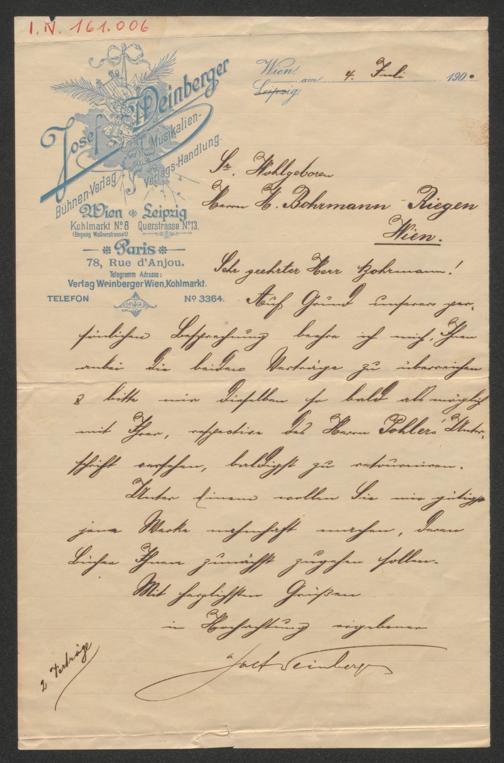 I.N. 161.006
Josef Weinberger
Bühnen-Verlag
Musikalien-
Verlags-Handlung.
Wien Leipzig
Kohlmarkt No 8 Querstrasse No 13.
(Eingang Wallnerstrasse 1)
Paris
78, Rue d'Anjou.
Telegramm Adresse:
Verlag Weinberger Wien, Kohlmarkt.
TELEFON No 3364.
Wien
Leipzig am 4. Juli 1900
Sr. Wohlgeboren
Herrn H. Bohrmann Riegen
Wien.
Sehr geehrter Herr Bohrmann!
Auf Grund unserer per-
sönlichen Besprechung beehre ich mich, Ihnen
anbei die beiden Verträge zu überreichen
& bitte mir dieselben so bald als möglich
mit Ihrer, respective des Herrn Pohler's Unter-
schrift versehen, baldigst zu retourniren.
Unter Einem wollen Sie mir gütigst
jene Werke namhaft machen, deren
Bücher Ihnen zunächst zugehen sollen.
Mit herzlichsten Grüßen
in Hochachtung ergebener
Josef Weinberger
2 Verträge